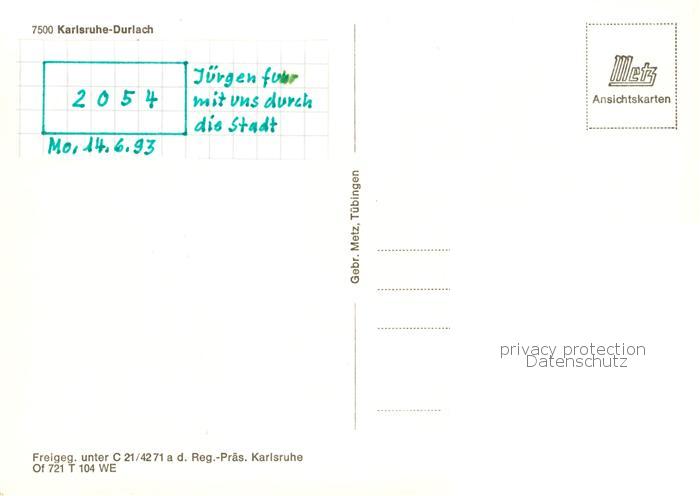 7500 Karlsruhe-Durlach
2054
Jürgen fuhr
mit uns durch
die Stadt
Mo, 14.6.93
Metz
Ansichtskarten
Gebr. Metz, Tübingen
privacy protection
Datenschutz
Freigeg. unter C 21/4271 a d. Reg.-Präs. Karlsruhe
Of 721 T 104 WE